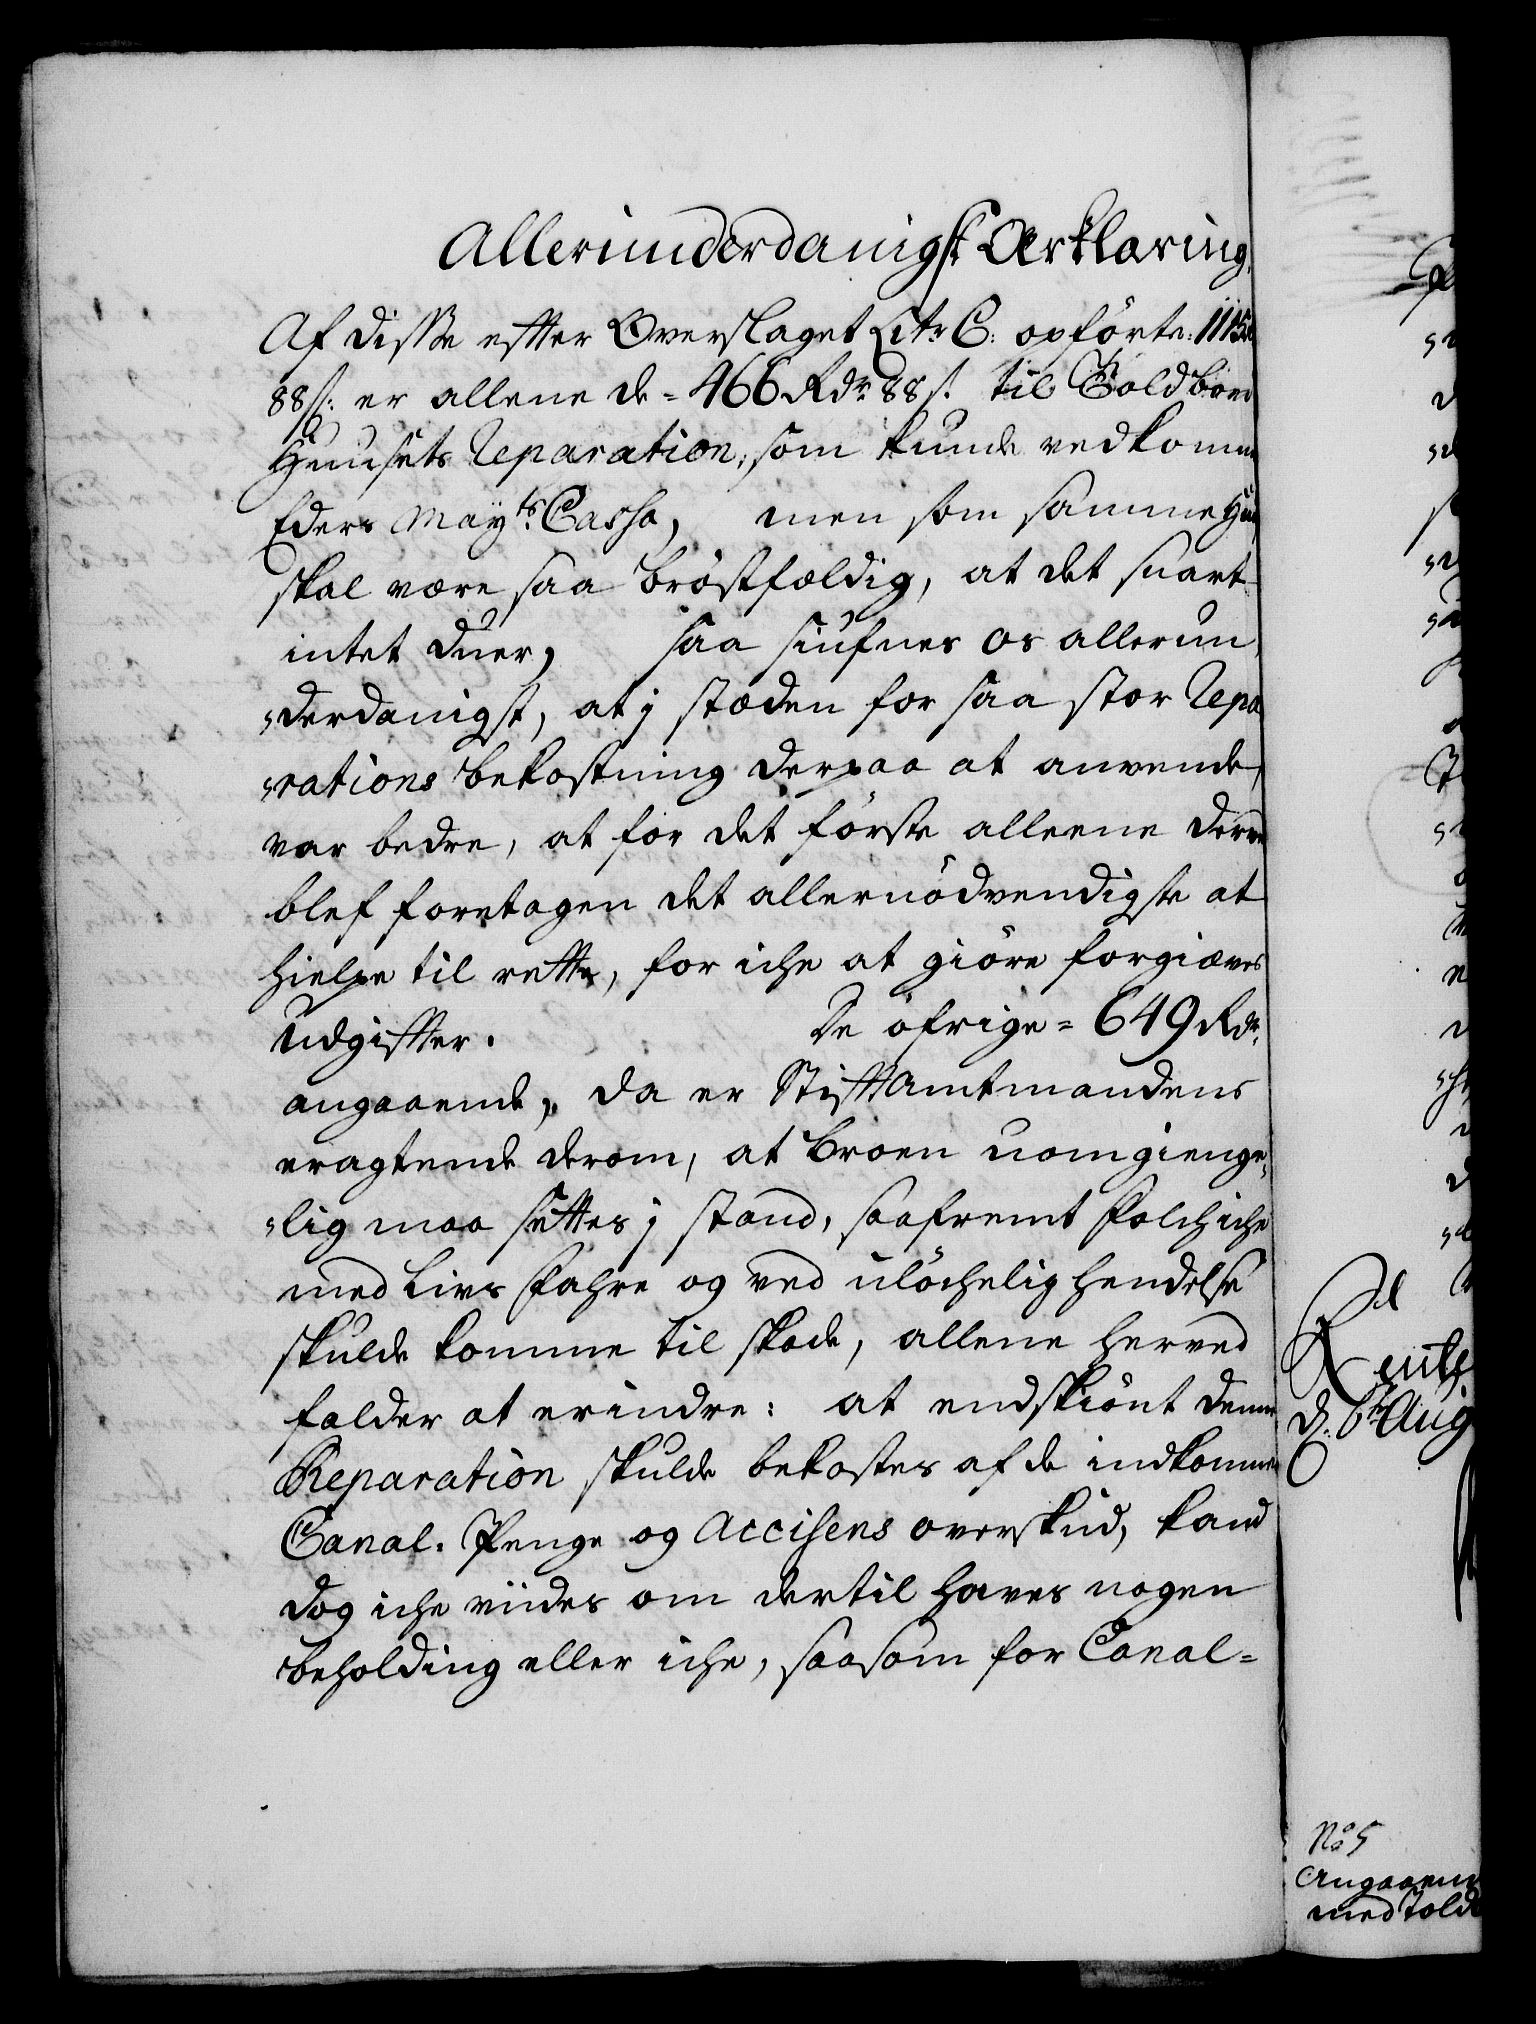 Allerunderdanigst Ærklæring.
Af disse efter Overslaget Litr C: opförte: 1115
88 s: er allene de = 466 Rdr 88 s. til Toldboe
Huusets Reparation, som kunde vedkomme
Eders Mayts Cassa, men som samme Huus
skal være saa bröstfældig, at det snart
intet duer, saa siufnes os allerun
"derdanigst, at j stæden for saa stor Repa
"rations bekostning derpaa at anvende,
var bedre, at for det förste alleene derved
blef foretagen det allernödvendigste at
hielpe til rette, for iche at giöre forgiæves
Udgifter. De öfrige = 649 Rdr
angaaende, da er Stiftamtmandens
eragtende derom, at Broen uomgienge
"lig maa settes j stand, saafremt Folch iche
med Livs Fahre og ved ulöchelig hendelse
skulde komme til skade, allene herved
falder at erindre: at endskiönt denne
Reparation skulde bekostes af de indkomne
Canal-Penge og Accisens overskud, kand
dog iche viides om dertil haves nogen
beholding eller iche, saasom for Canal=
Rente
d. 6te Aug
No 5
Angaaen
med Told